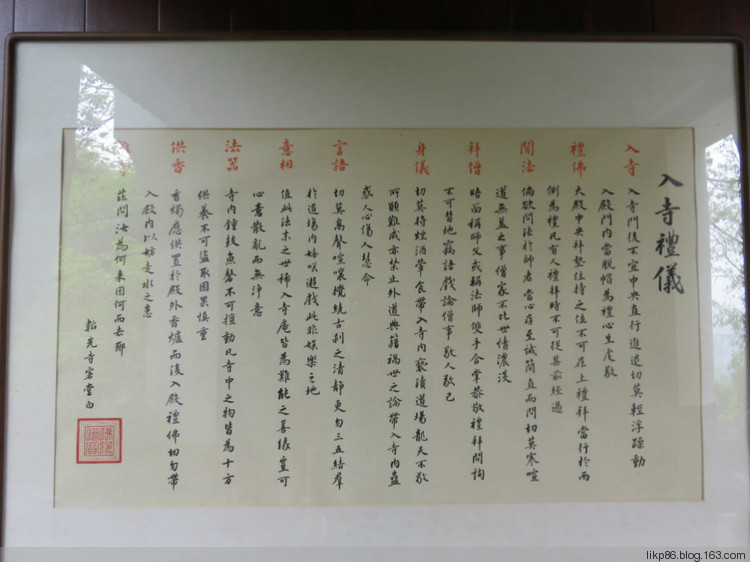 入寺禮儀
入寺 入寺門後不宜中央直行進退切莫輕浮躁動
入殿門內當脫帽為禮心生虔敬
禮佛 大殿中央拜墊住持之位不可在上禮拜當行於兩
側為禮凡有人禮拜時不可從其前經過
聞法 偶欲問法於師者當心存至誠簡直而問切莫寒喧
道無益之事僧家不比世情濃淡
拜僧 晤面稱師父或稱法師雙手合掌恭敬禮拜問詢
不可背地竊語戲論僧事敬人敬己
身儀 切莫持煙酒葷食帶入寺內褻瀆道場龍天不敬
所願難成亦禁止外道典籍禍世之論帶入寺內蠱
惑人心傷人慧命
言語 切莫高聲喧嚷攪繞古剎之清靜更勿三五結群
於道場內嬉笑遊戲此非娛樂之地
意相 值此法末之世稀入寺庵皆為難能之善緣豈可
心意散亂而無淨意
法器 寺內鐘鼓魚磬不可擅動凡寺中之物皆為十方
供養不可盜取因果慎重
供香 香燭應供置於殿外香爐而後入殿禮佛切勿帶
入殿內以妨走水之患
茲問汝為何來因何而去耶
韜光寺客堂白
likp86.blog.163.com